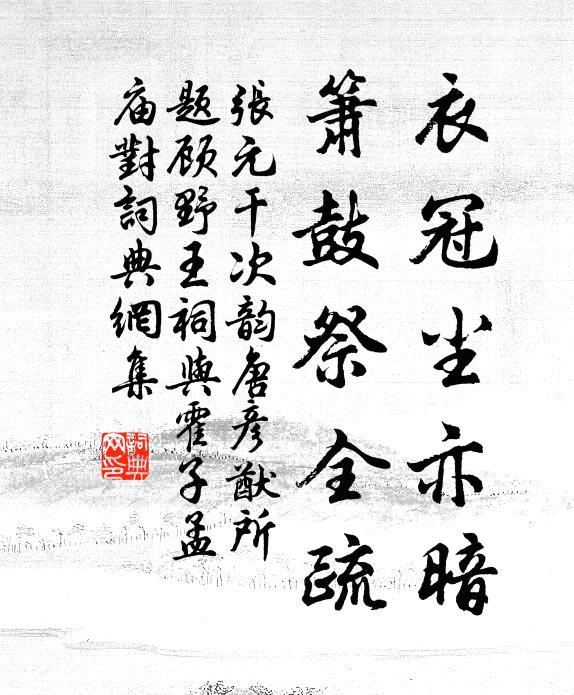 衣冠尘亦暗
箫鼓祭全疏
張元干次韵唐彦猷所
题顾野王祠與霍子孟
庙對詞典網集
詞典网印